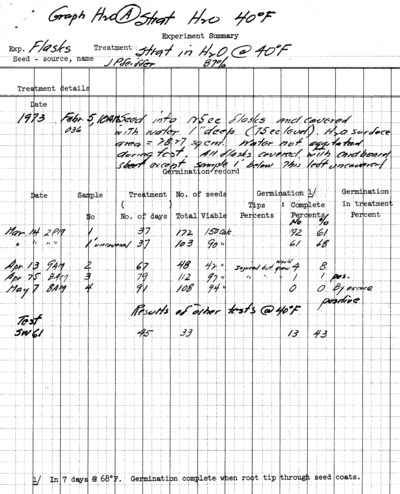 Graph H2O (A) Strat H2O 40°F
Experiment Summary
Exp. Flasks Treatment Strat in H2O @ 40°F
Seed - source, name J.P. 87%
Treatment details
Date
1973 Febr. 5, 10AM Seed into flasks and covered
036 with water 1" deep (75cc level). H2O surface
area = 78.77 sq cm. Water not agitated
during test. All flasks covered with cardboard
sheet except sample 1' below this left uncovered
Germination record
Date Sample Treatment No. of seeds Germination 1/ Germination
( ) Tips : Complete in treatment
No No. of days Total Viable Percents Percents Percent
No %
Mar. 14 2PM 1 37 172 150 92 61
" " " " 1' uncovered 37 103 90" 61 68
Apr 13 9AM 2 67 48 Injured but grow 4 8
Apr 25 8AM 3 79 112 97" " " " 1 1 pos.
May 7 8AM 4 91 108 94" 0 0
positive
Results of other tests @ 40°F
Test
SW61 45 33 13 43
1/ In 7 days @ 68°F. Germination complete when root tip through seed coats.